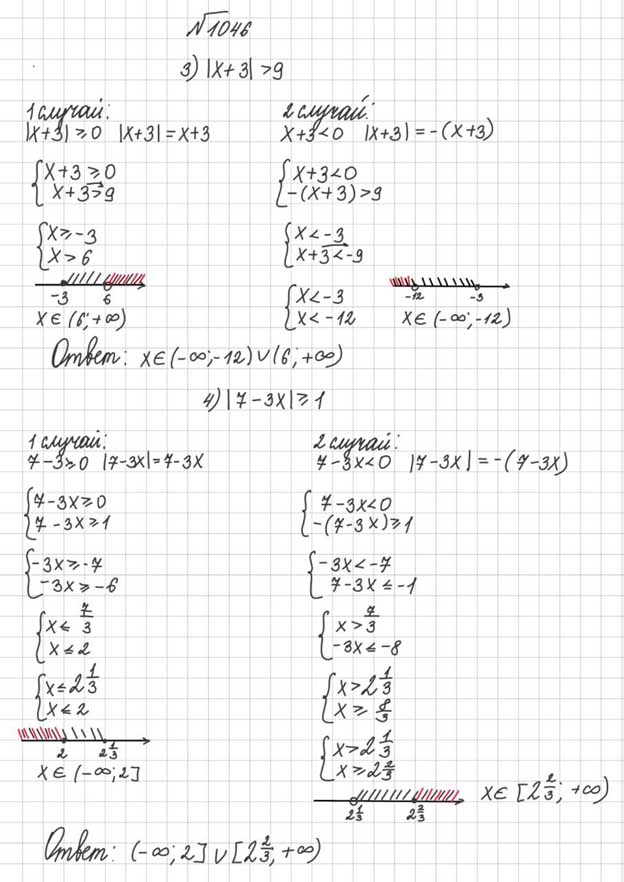 №1046
3) |x+3|>9
1 случай:
|x+3|≥0 |x+3|=x+3
{x+3≥0
x+3>9
{x≥-3
x>6
-3 6
x∈(6;+∞)
2 случай:
x+3<0 |x+3|=-(x+3)
{x+3<0
-(x+3)>9
{x<-3
x+3<-9
{x<-3
x<-12
-12 -3
x∈(-∞;-12)
Ответ: x∈(-∞;-12)∪(6;+∞)
4) |7-3x|≥1
1 случай:
7-3≥0 |7-3x|=7-3x
{7-3x≥0
7-3x≥1
{-3x≥-7
-3x≥-6
{x≤7/3
x≤2
{x≤2 1/3
x≤2
2 2 1/3
x∈(-∞;2]
2 случай:
7-3x<0 |7-3x|=-(7-3x)
{7-3x<0
-(7-3x)≥1
{-3x<-7
7-3x≤-1
{x>7/3
-3x≤-8
{x>2 1/3
x≥8/3
{x>2 1/3
x≥2 2/3
2 1/3 2 2/3
x∈[2 2/3;+∞)
Ответ: (-∞;2]∪[2 2/3;+∞)